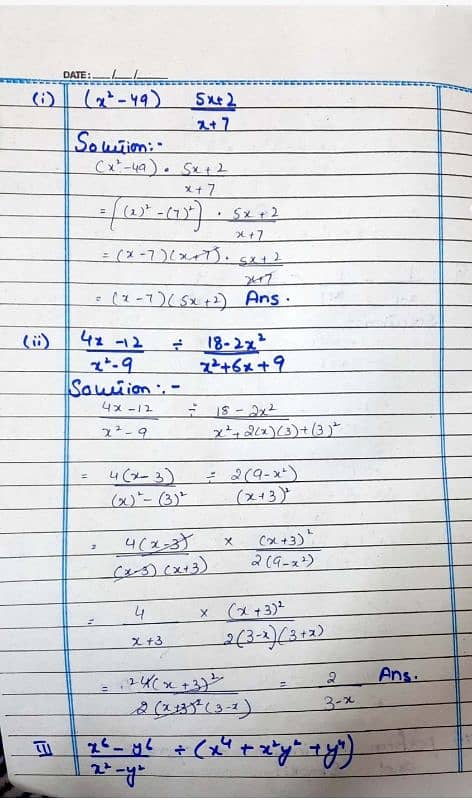 DATE: __/__/__
(i) (x² - 49) 5x+2/x+7
Solution:-
(x²-49) · 5x+2/x+7
= [(x)² - (7)²] · 5x+2/x+7
= (x-7)(x+7) · 5x+2/x+7
= (x-7)(5x+2) Ans.
(ii) 4x-12/x²-9 ÷ 18-2x²/x²+6x+9
Solution:-
4x-12/x²-9 ÷ 18-2x²/x²+2(x)(3)+(3)²
= 4(x-3)/(x)²-(3)² ÷ 2(9-x²)/(x+3)²
= 4(x-3)/(x-3)(x+3) × (x+3)²/2(9-x²)
= 4/x+3 × (x+3)²/2(3-x)(3+x)
= 2 4(x+3)²/2(x+3)²(3-x) = 2/3-x Ans.
III x⁶-y⁶/x²-y² ÷ (x⁴+x²y²+y⁴)